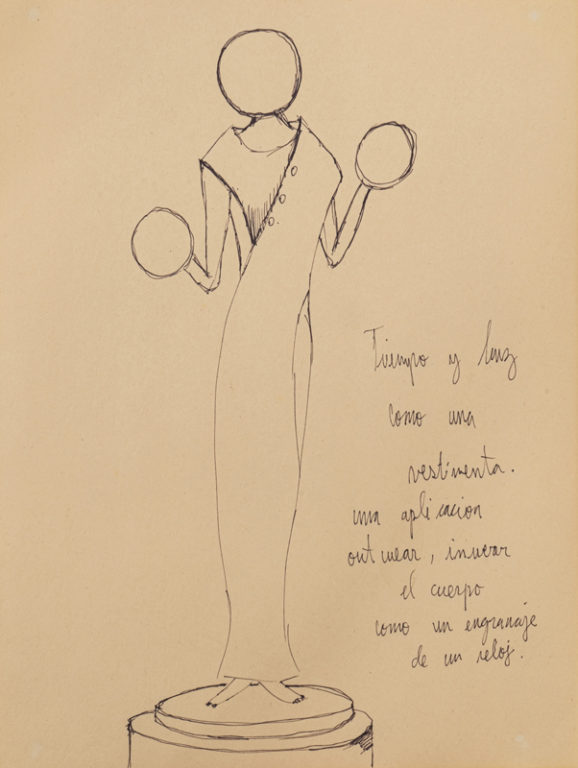 Tiempo y luz
como una
vestimenta.
una aplicacion
out wear, inucrar
el cuerpo
como un engranaje
de un reloj.